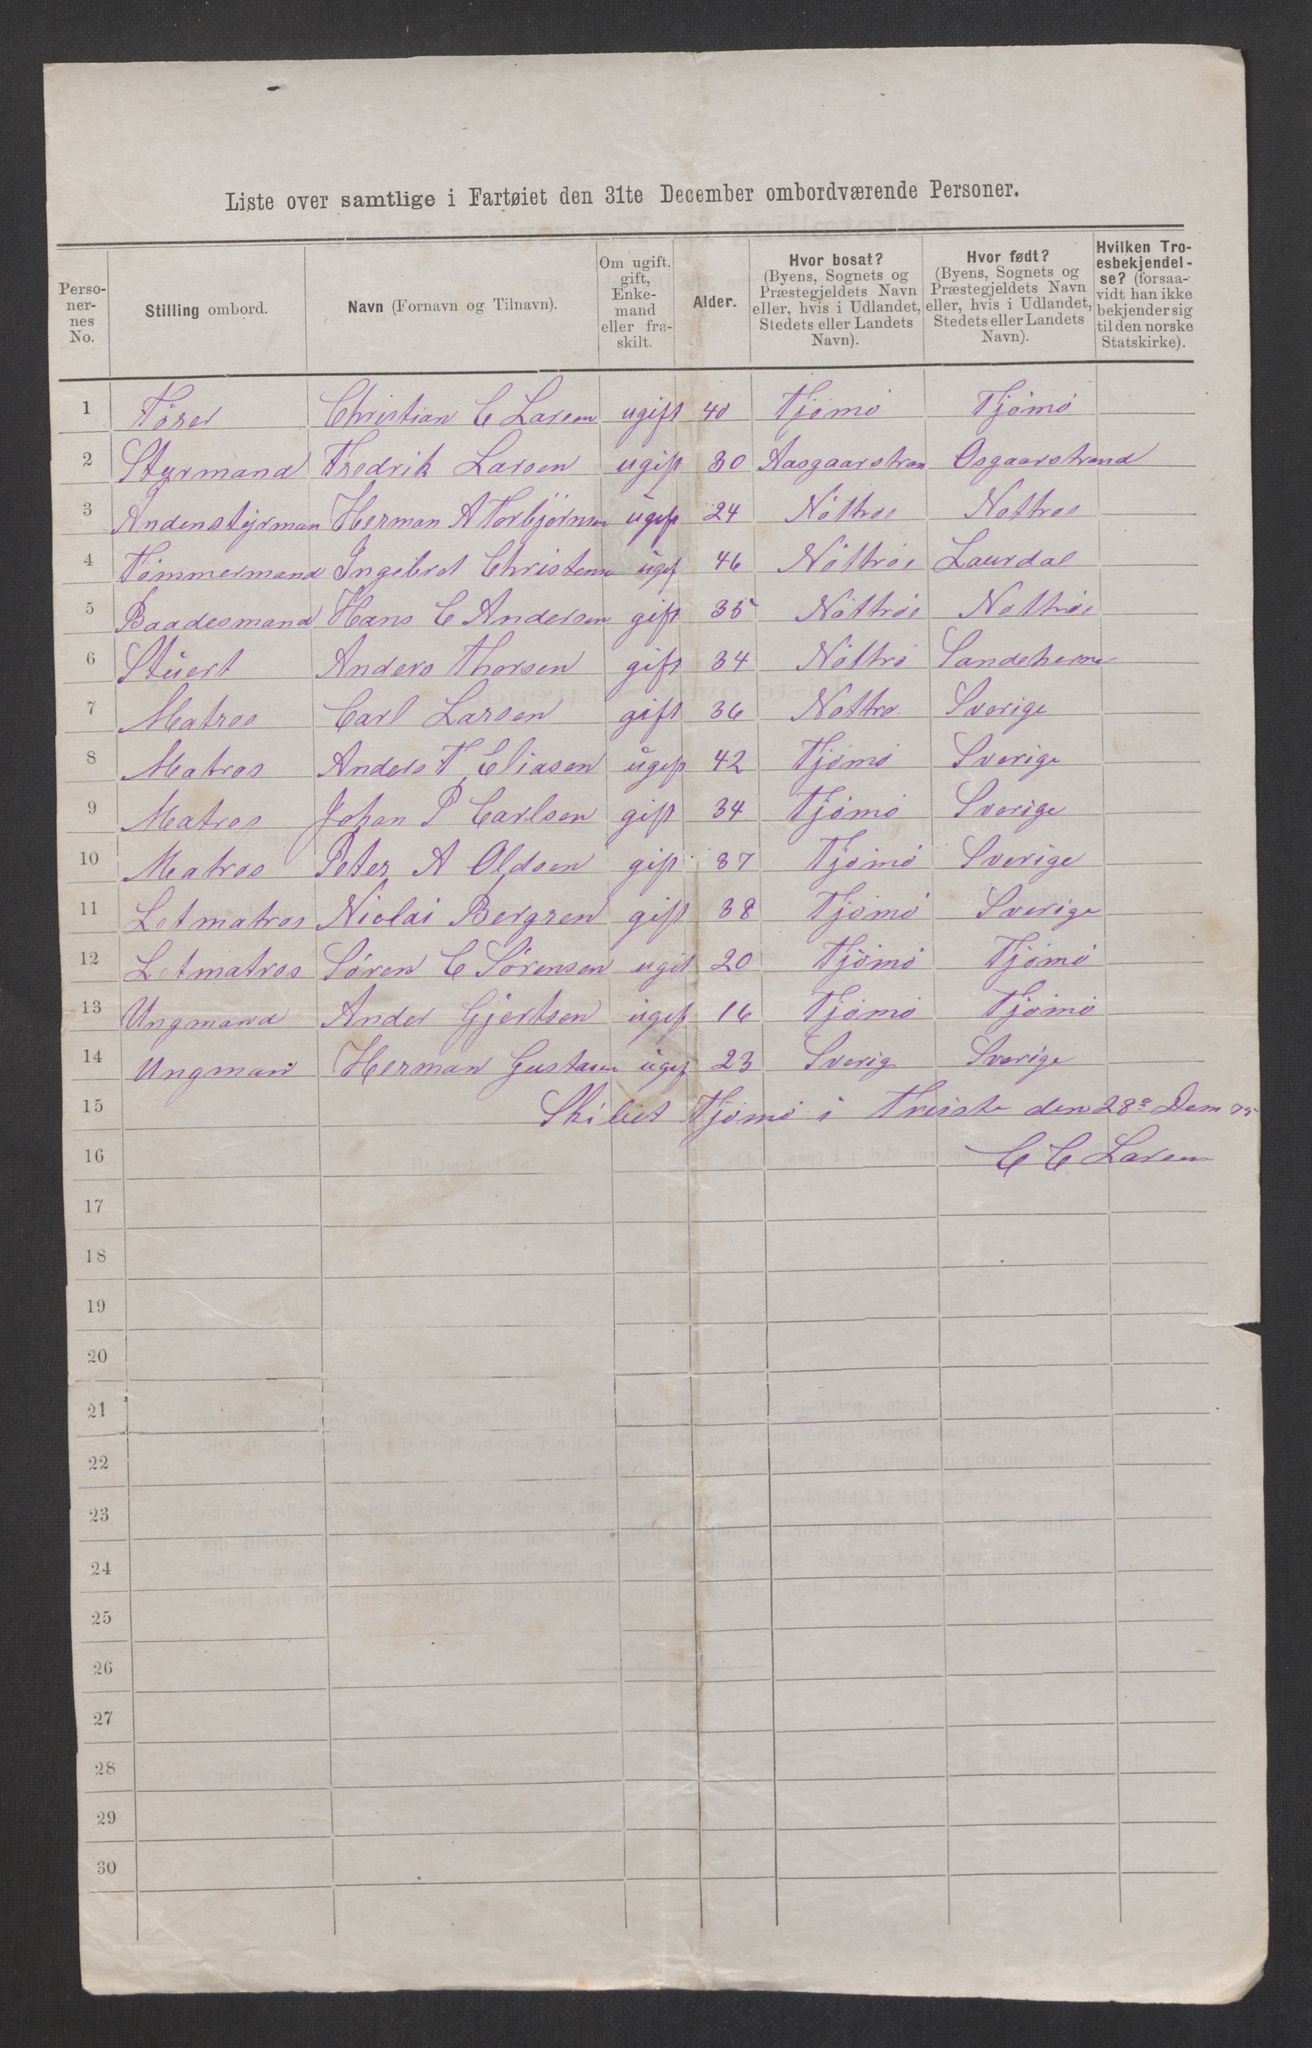 Liste over samtlige i Fartøiet den 31te December ombordværende Personer.
Personernes No. | Stilling ombord. | Navn (Fornavn og Tilnavn). | Om ugift, gift, Enkemand eller fraskilt. | Alder. | Hvor bosat? (Byens, Sognets og Præstegjeldets Navn eller, hvis i Udlandet, Stedets eller Landets Navn). | Hvor født? (Byens, Sognets og Præstegjeldets Navn eller, hvis i Udlandet, Stedets eller Landets Navn). | Hvilken Troesbekjendelse? (forsaavidt han ikke bekjender sig til den norske Statskirke).
1 Förer Christian C Larsen ugift 40 Tjömö Tjömö
2 Styrmand Fredrik Larsen ugift 30 Aasgaarstran Osgaarstrand
3 Andenstyrman Herman A Torbjörnsen ugift 24 Nöttrö Nottrøe
4 Tömmermand Ingebret Christensen ugift 46 Nöttröe Laurdal
5 Baadesmand Hans C Andersen gift 35 Nöttröe Nottröe
6 Stüert Anders Thorsen gift 34 Nöttrö Sandeherne
7 Matros Carl Larsen gift 36 Nottro Sverige
8 Matros Anders T Eliasen ugift 42 Tjömö Sverige
9 Matros Johan P Carlsen gift 34 Tjömö Sverige
10 Matros Peter A Oldsen gift 37 Tjömö Sverige
11 Letmatros Niolai Bergsen gift 38 Tjömö Sverige
12 Letmatros Sören C Sörensen ugift 20 Tjömö Tjömö
13 Ungmand Ander Gjertsen ugift 16 Tjömö Tjömö
14 Ungman Herman Gustasen ugift 23 Sverig Sverige
15 Skibet Tjömö i Trieste den 28e Dem 75
16 C C Larsen
17
18
19
20
21
22
23
24
25
26
27
28
29
30